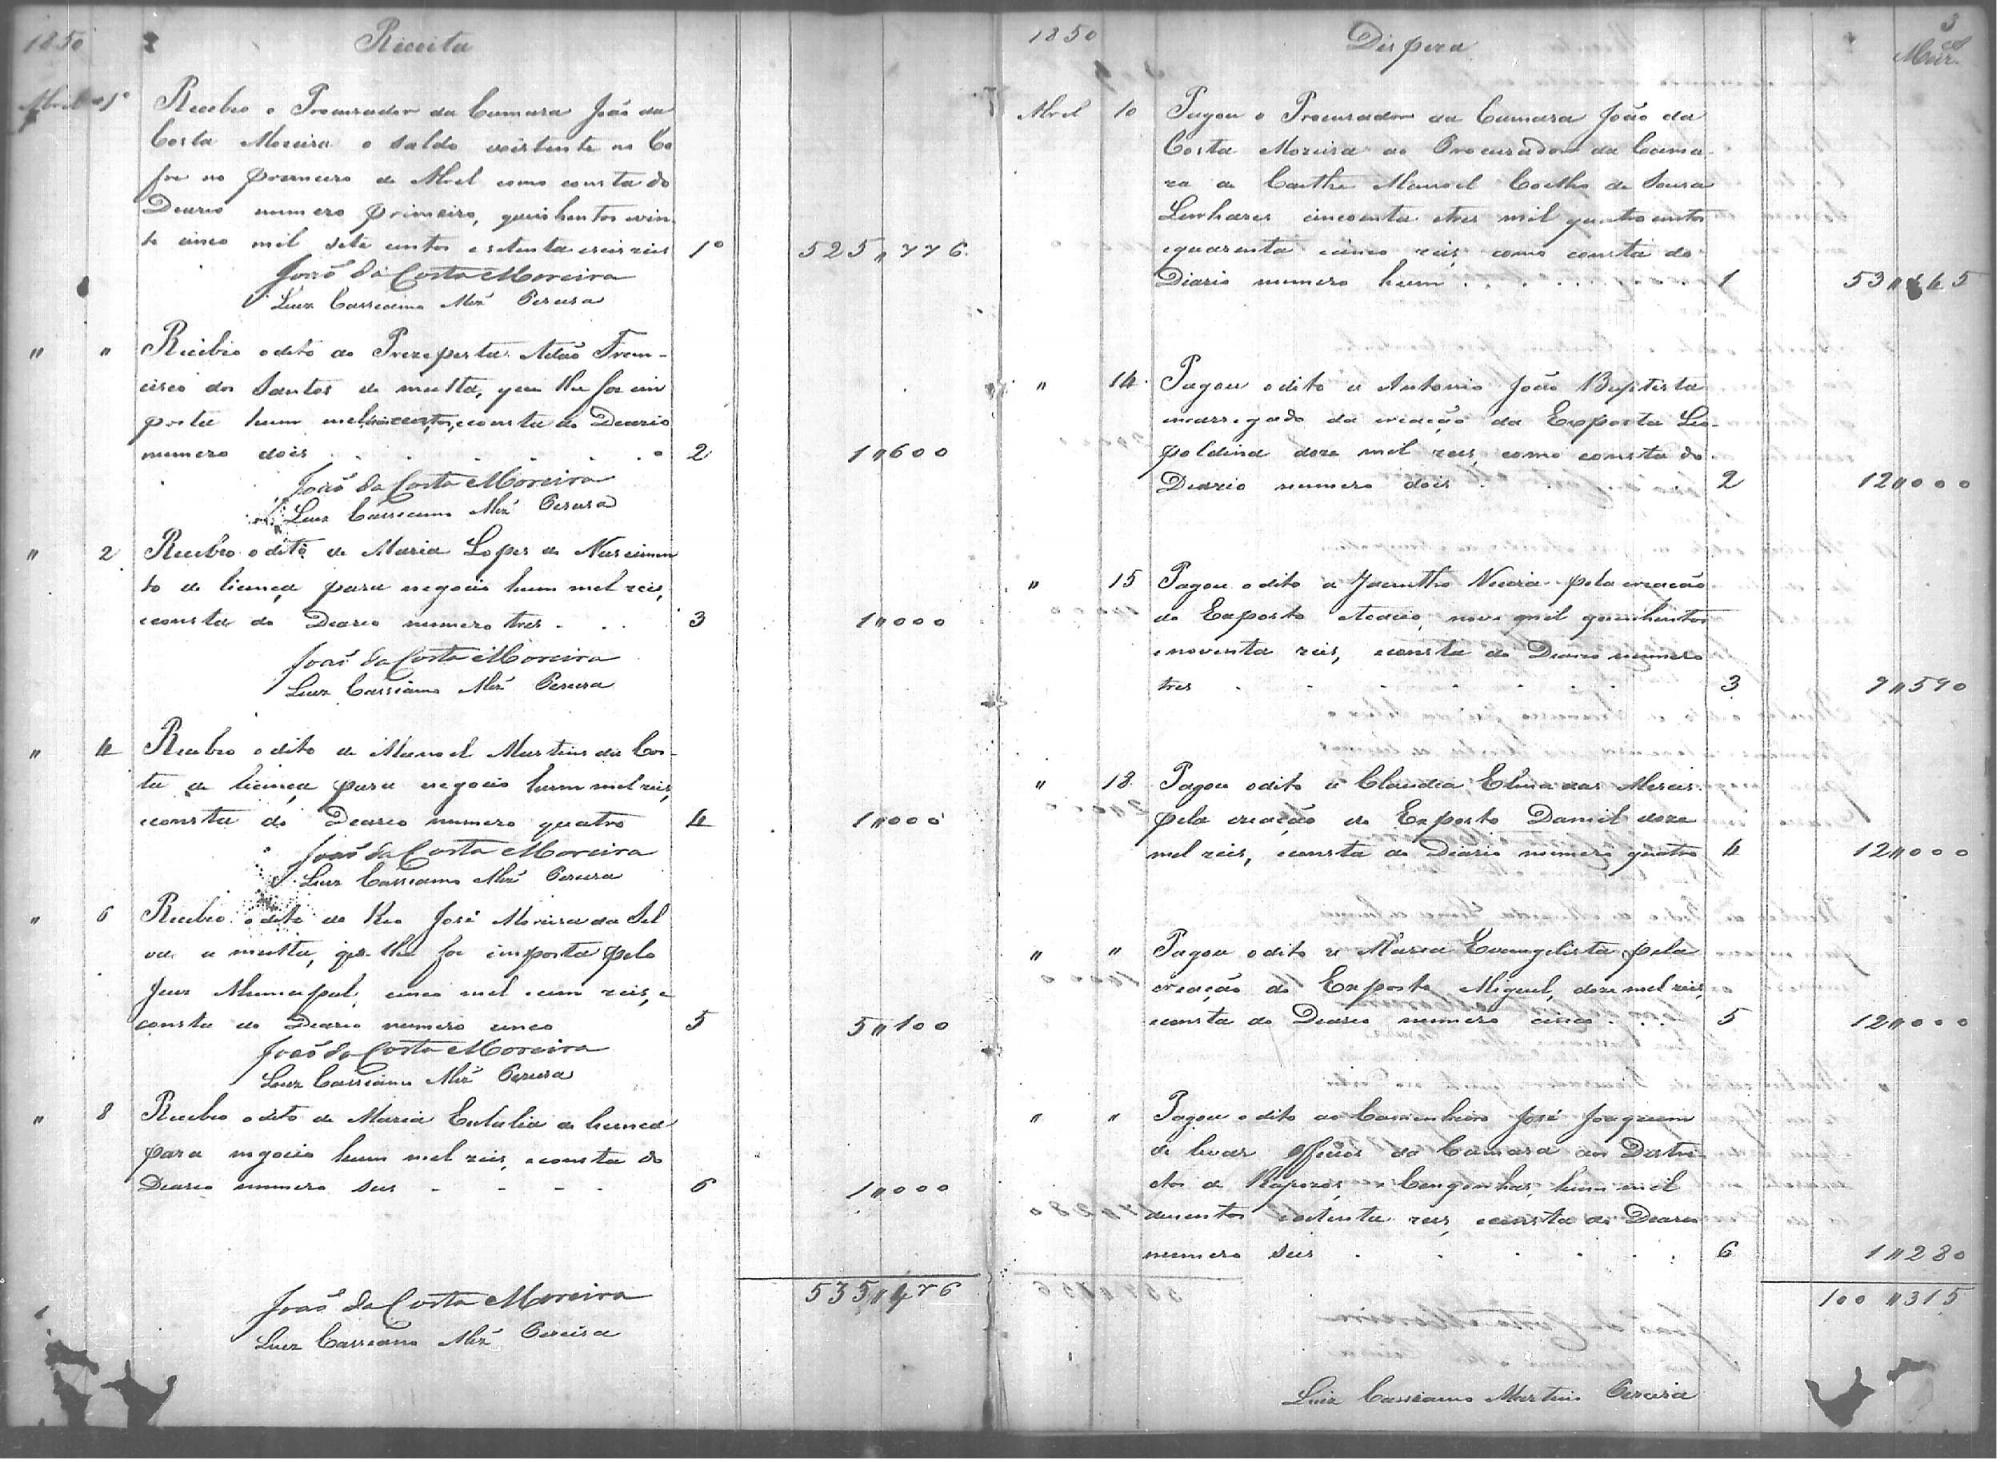 1850
Receita
Abril 1º Recebeo o Procurador da Camara João da
Costa Moreira o saldo existente no Co
fre no primeiro de Abril como consta do
Deario numero primeiro, quinhentos evin
te cinco mil sete centos esetenta eseis reis 1º 525,,776
João da Costa Moreira
Luiz Cassiano Miz Pereira
" " Recebeo odito do Prezepesta Adão Fran-
cisco dos Santos de multa, que lhe foi im
posta hum mel seiscentos, econsta do Deario
numero dois . . . . . . 2 1,,600
João da Costa Moreira
Luiz Cassiano Miz Pereira
" 2 Recebeo odito de Maria Lopes do Nascimen
to de licença para negocio hum mel reis,
econsta do Deario numero tres . . . 3 1,,000
João da Costa Moreira
Luiz Cassiano Miz Pereira
" 4 Recebeo odito de Manoel Martins da Cos-
ta de licença para negocio hum mel reis,
econsta do Deario numero quatro 4 1,,000
João da Costa Moreira
Luiz Cassiano Miz Pereira
" 6 Recebeo odito do Reo José Moreira da Sil
va a multa, que lhe foi imposta pelo
Juiz Municipal, cinco mel ecem reis, e
consta do Deario numero cinco 5 5,,100
João da Costa Moreira
Luiz Cassiano Miz Pereira
" 8 Recebeo odito de Maria Eulalia de licença
para negocio hum mel reis, econsta do
Deario numero seis - - - - 6 1,,000
535,,476
João da Costa Moreira
Luiz Cassiano Miz Pereira
3
1850
Despeza
Abril 10 Pagou o Procurador da Camara João da
Costa Moreira ao Procurador da Cama-
ra de Caethe Manoel Coelho de Sousa
Linhares cincoenta etres mil quatrocentos
equarenta ecinco reis, como consta do
Diario numero hum . . . . . 1 53,,445
" 14 Pagou odito a Antonio João Baptista
encarregado da creação da Exposta Leo-
poldina doze mil reis, como consta do
Deario numero dois . . . . 2 12,,000
" 15 Pagou odito a Jacintho Vieira pela creação
do Exposto Acacio, nove mil quinhentos
enoventa reis, econsta do Deario numero
tres . . . . . . 3 9,,590
" 18 Pagou odito a Claudia Elena das Merces
pela creação do Exposto Daniel doze
mel reis, econsta do Diario numero quatro 4 12,,000
" " Pagou odito a Maria Evangelista pela
creação do Exposto Miguel, doze mel reis,
econsta do Deario numero cinco . . . 5 12,,000
" " Pagou odito ao Caminheiro José Joaquim
de levar Officios da Camara aos Destri-
ctos de Raposos, e Congonhas, hum mil
dusentos eoitenta reis, econsta do Deario
numero seis . . . . . . 6 1,,280
100,,315
Luiz Cassiano Martins Pereira